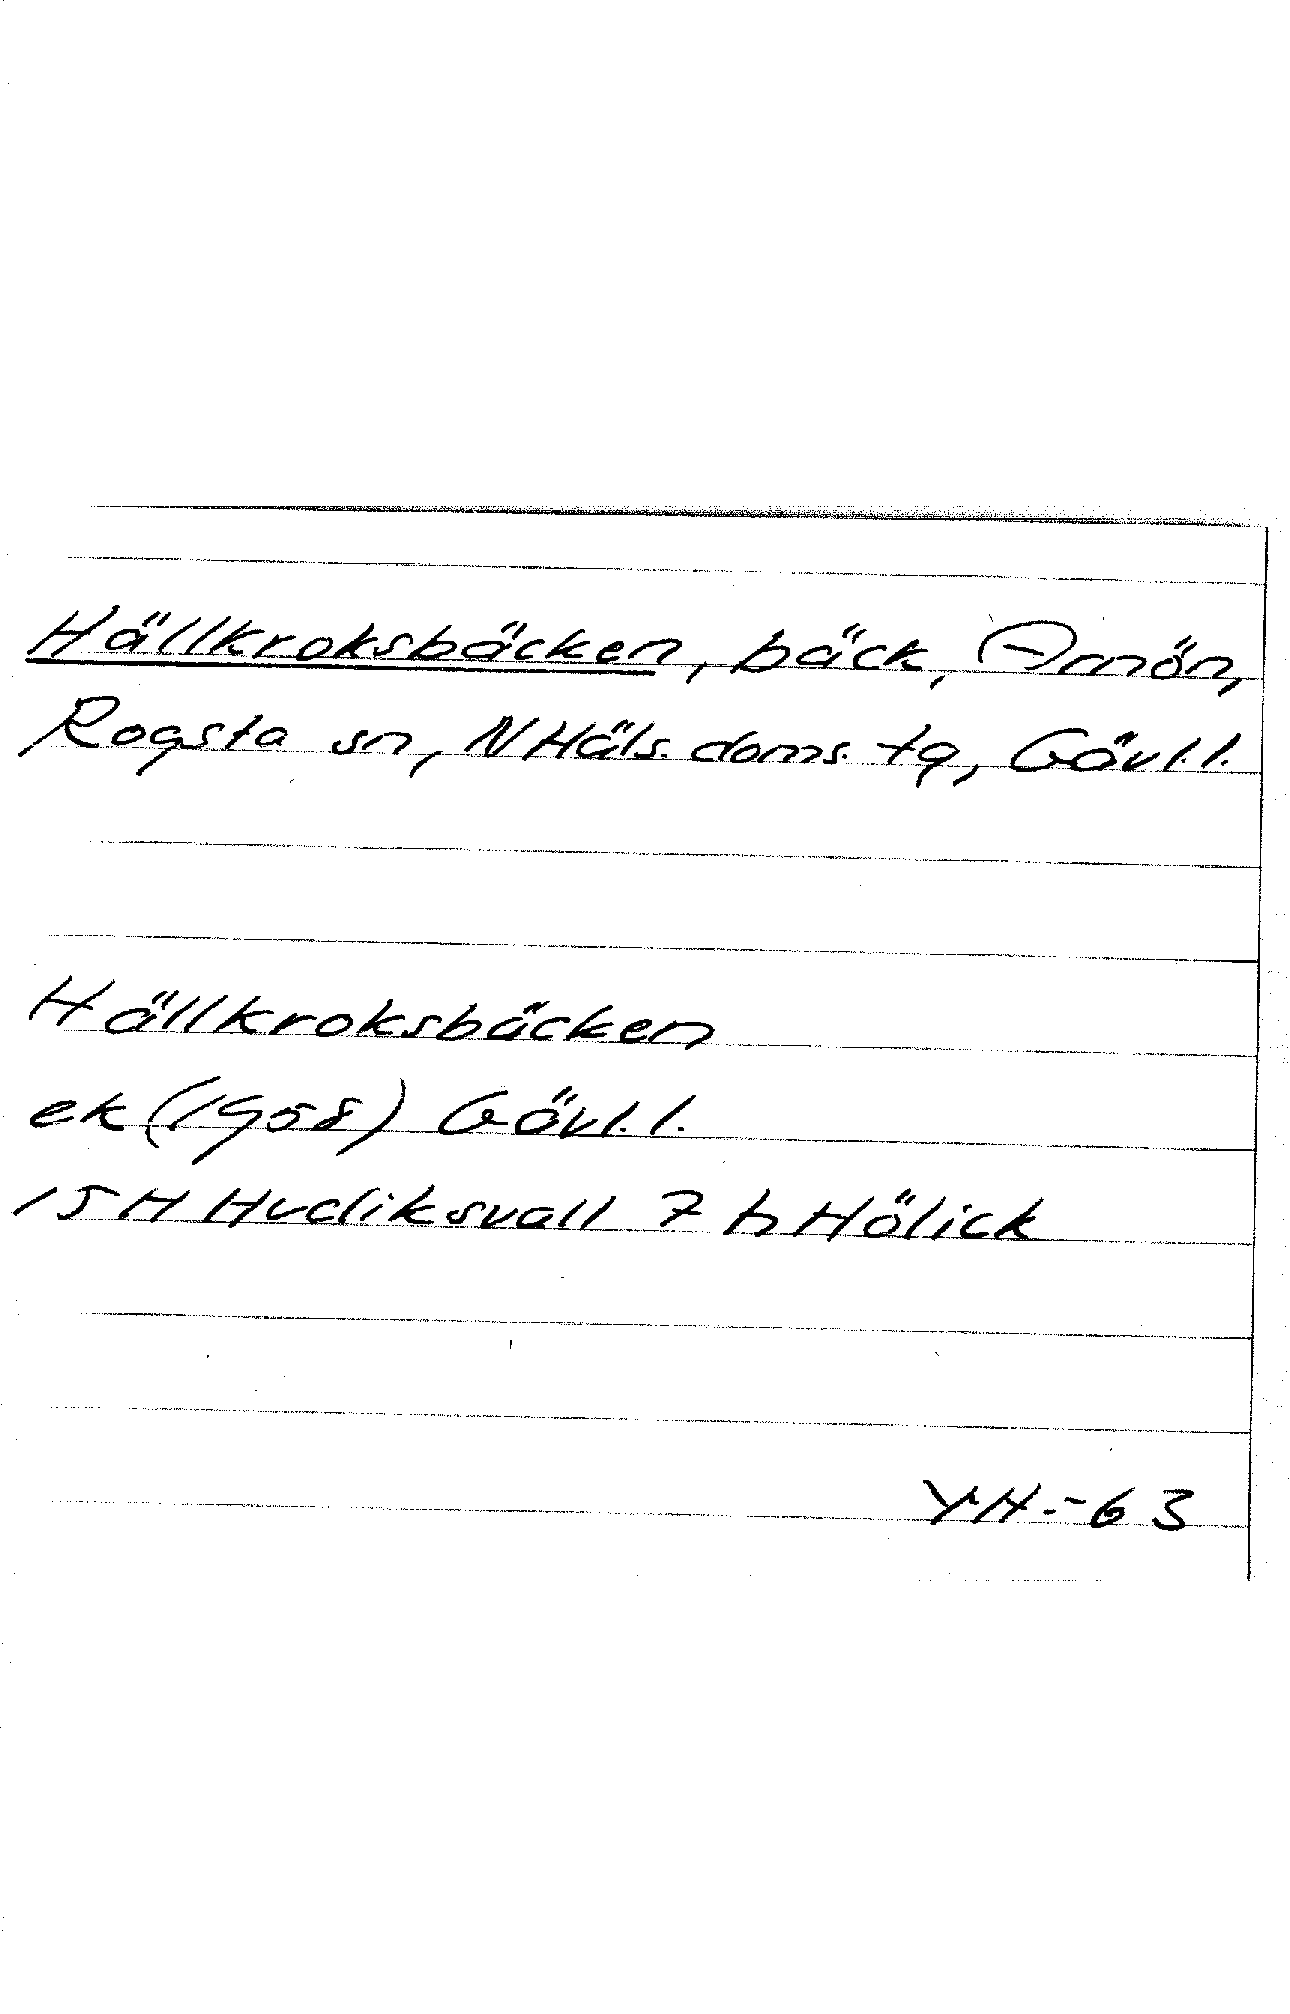 Hällkroksbäcken, bäck, Arnön,
Rogsta sn, N Häls. doms. tg, Gävl.l.
Hällkroksbäcken
ek (1958) Gävl.l.
15H Hudiksvall 7 h Hölick
YH.-63